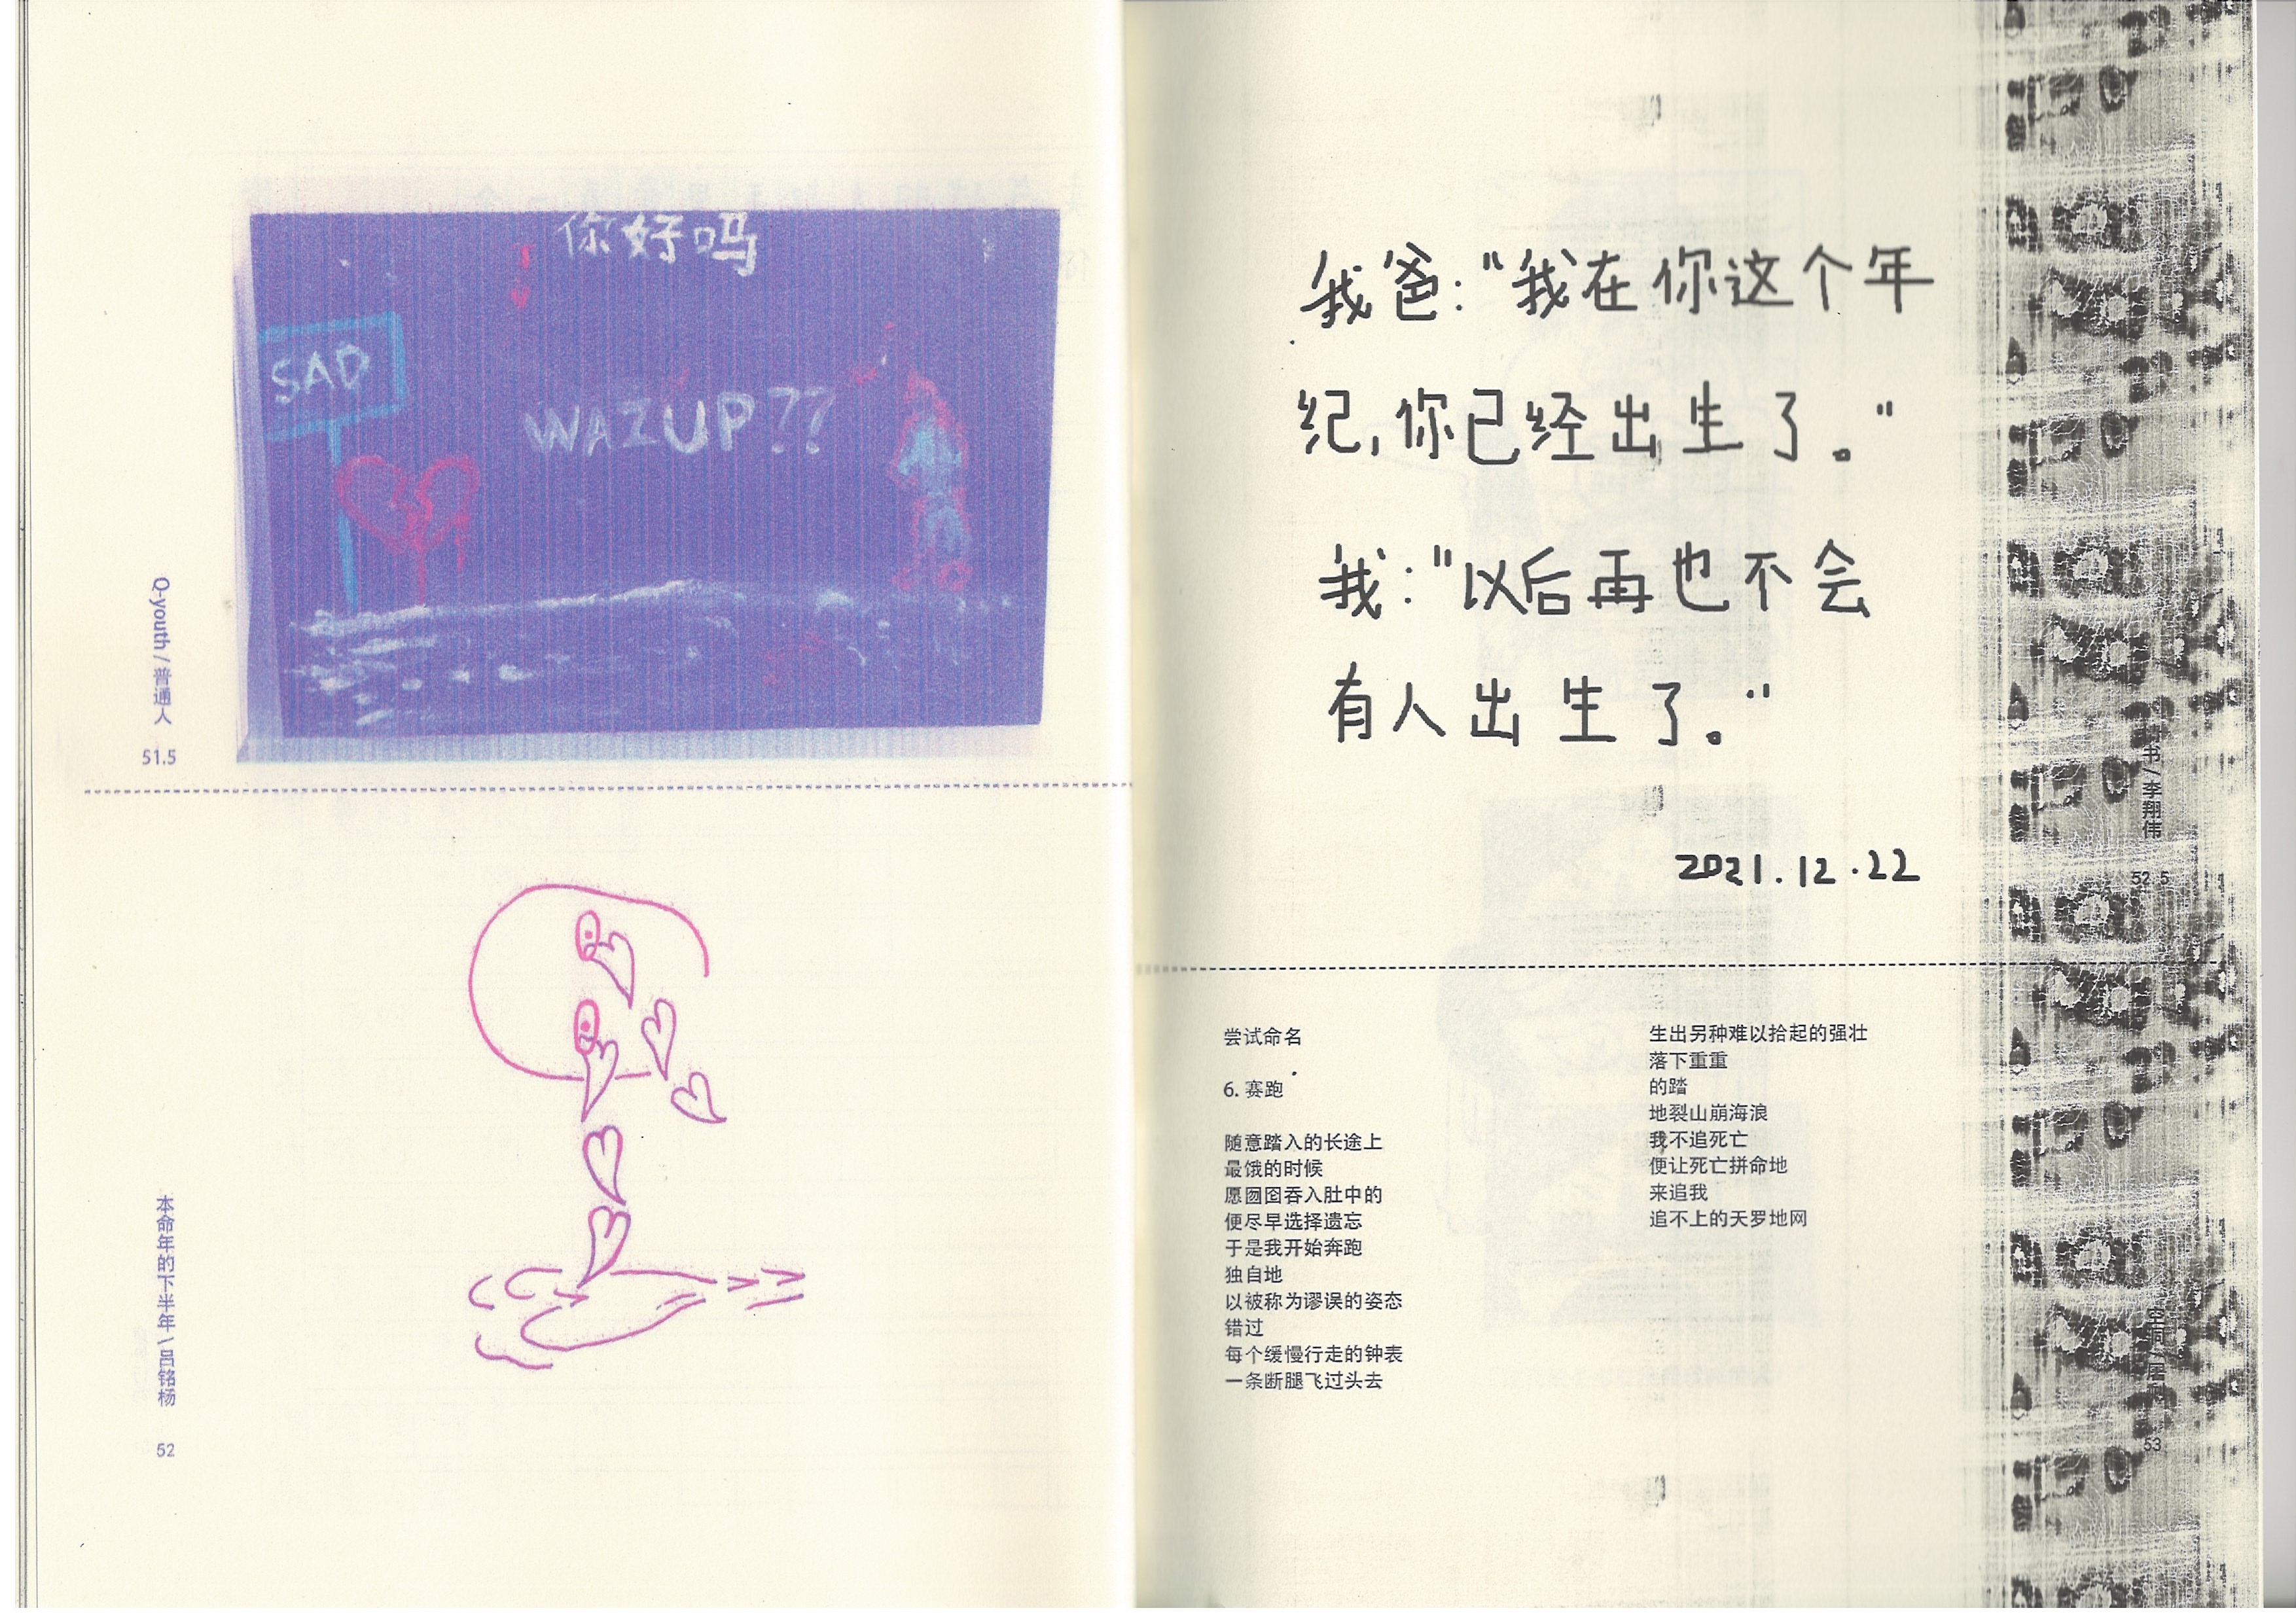 你好吗
SAD
WAZUP??
Q-youth / 普通人
51.5
本命年的下半年 / 吕铭杨
52
我爸："我在你这个年
纪，你已经出生了。"
我："以后再也不会
有人出生了。"
2021.12.22
书 / 李翔伟
52.5
尝试命名
6. 赛跑
随意踏入的长途上
最饿的时候
愿囫囵吞入肚中的
便尽早选择遗忘
于是我开始奔跑
独自地
以被称为谬误的姿态
错过
每个缓慢行走的钟表
一条断腿飞过头去
生出另种难以拾起的强壮
落下重重
的踏
地裂山崩海浪
我不追死亡
便让死亡拼命地
来追我
追不上的天罗地网
53